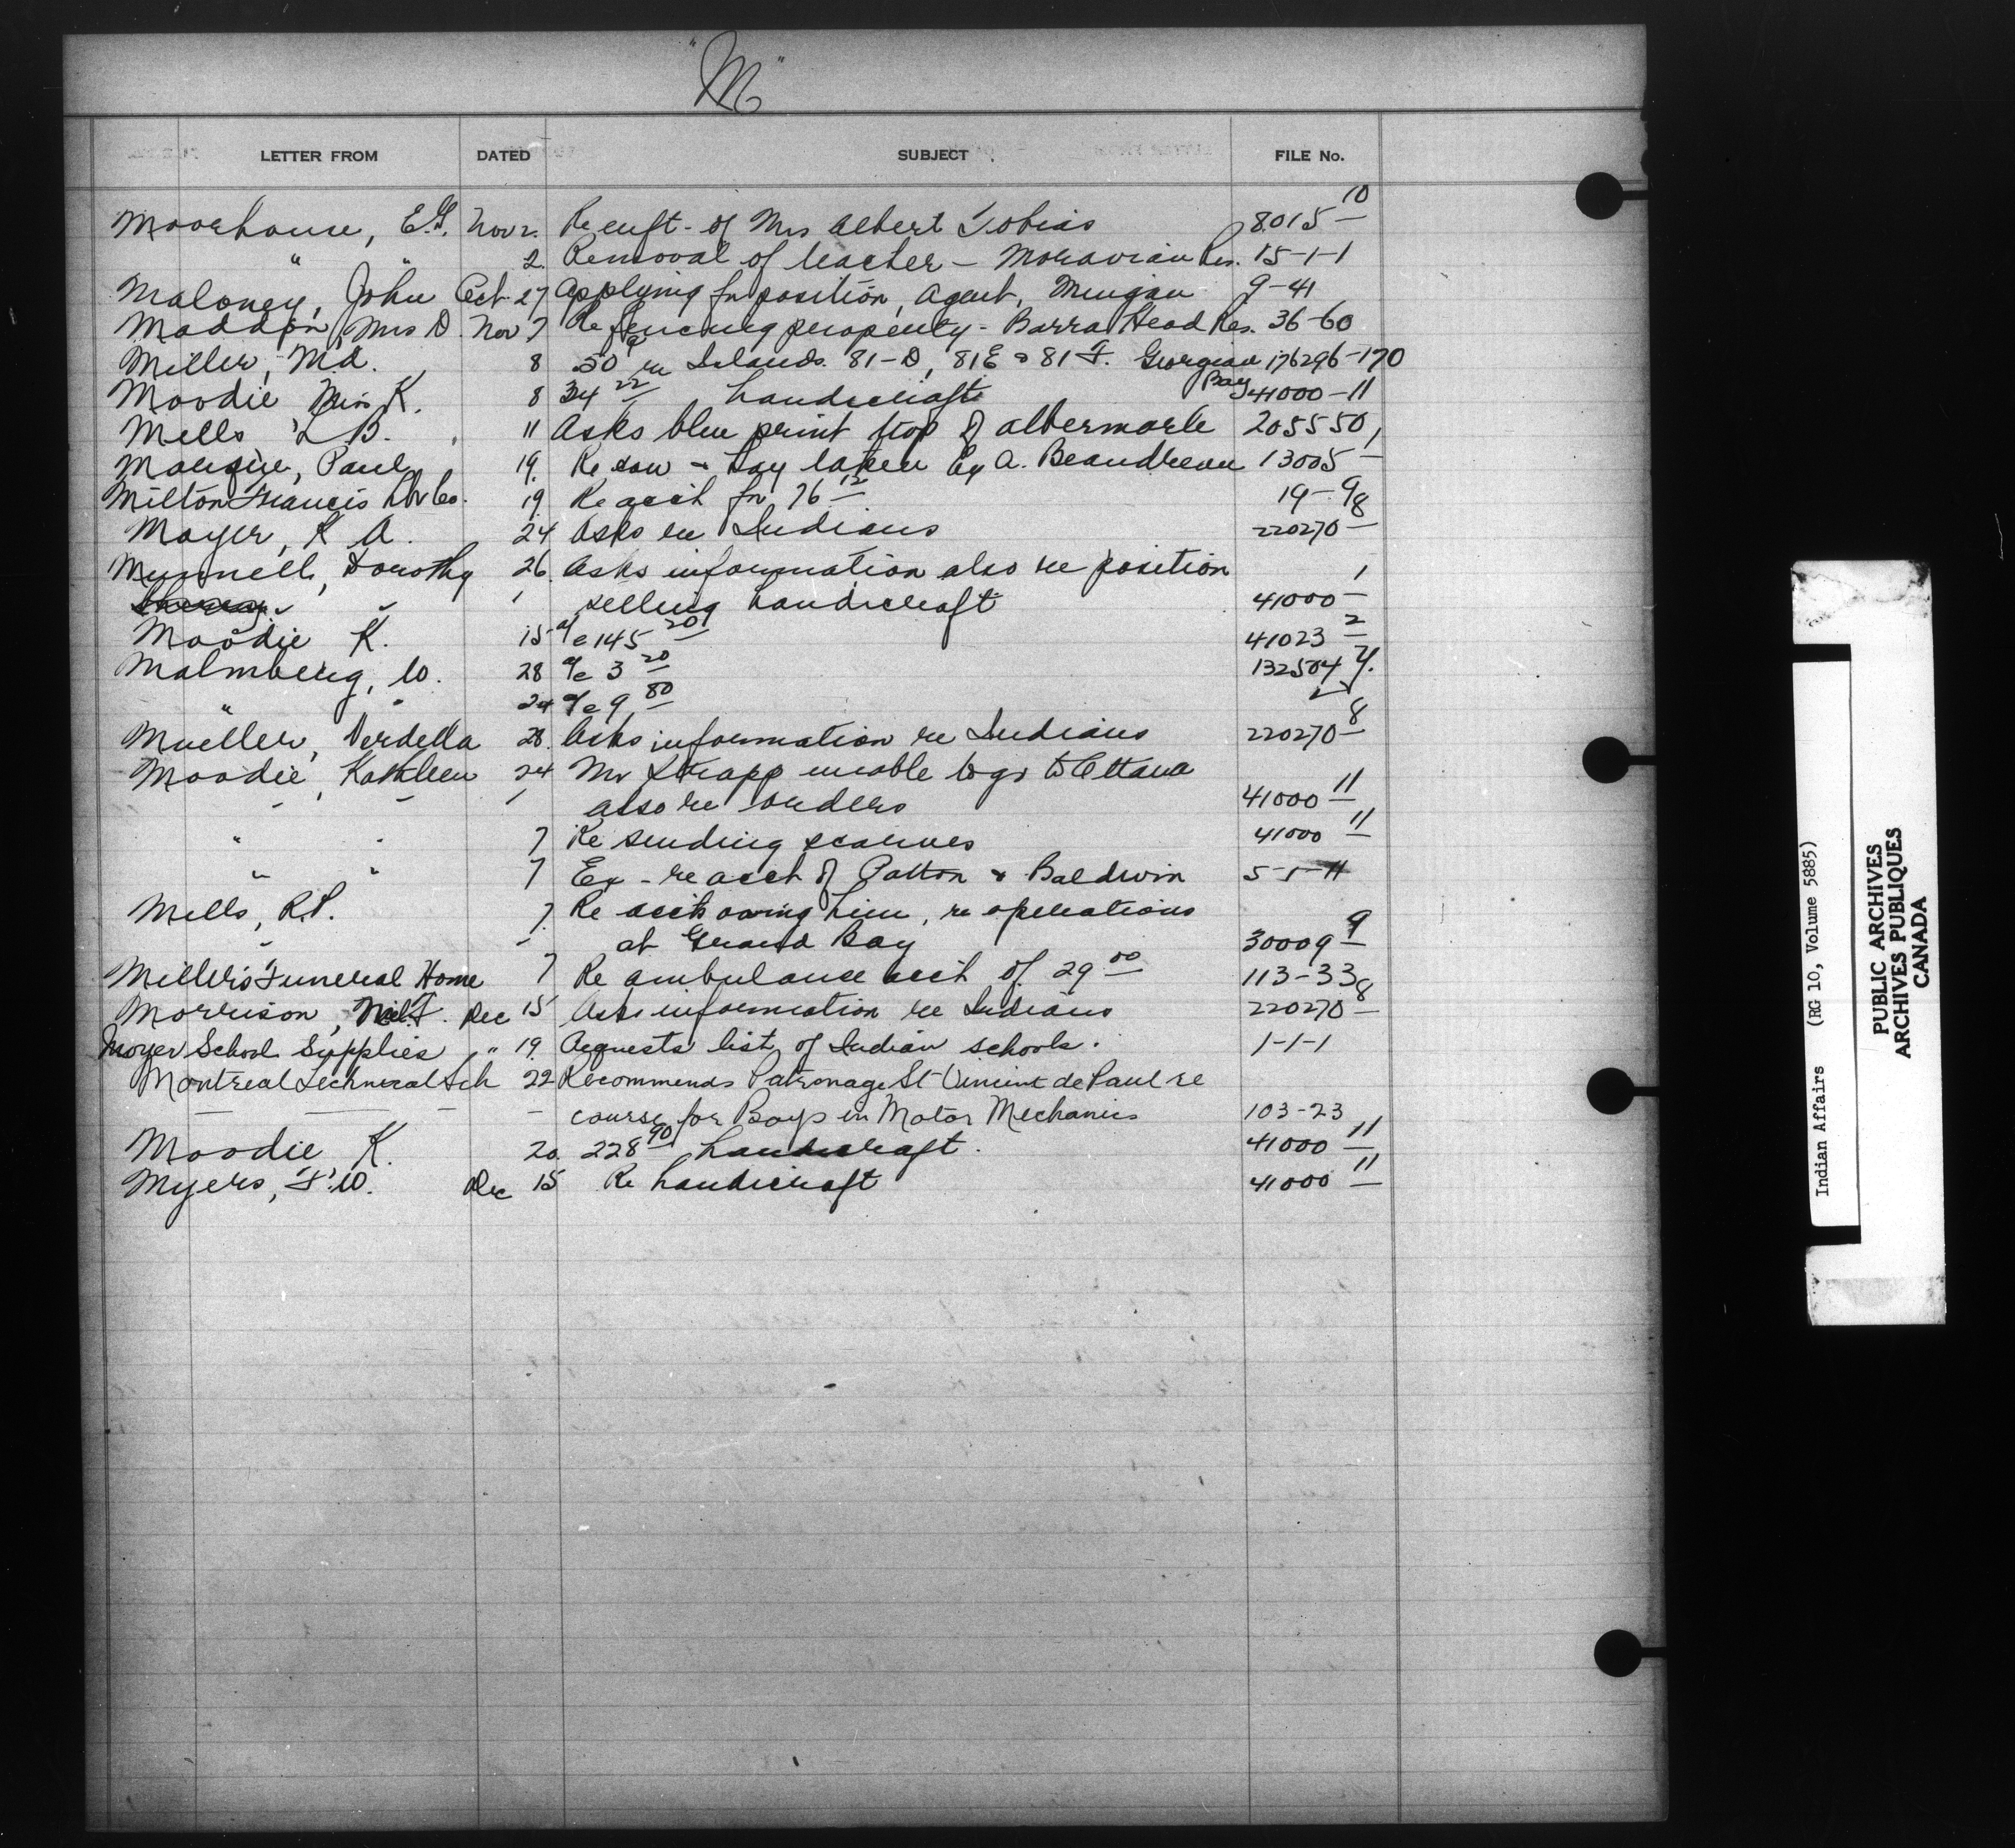 "M"
LETTER FROM DATED SUBJECT FILE No.
Moorhouse, E.G. Nov 2. Re enft - of Mrs Albert Tobias 8015-10
" " 2. Removal of teacher - Moravian Res. 15-1-1
Maloney, John Oct 27 Applying for position, Agent, Mingan 9-41
Maddon, Mrs D. Nov 7 Re fencing property - Barra Head Res. 36-60
Miller, Md. 8 50 re Islands 81-D, 81E & 81F. Georgian Bay 176296-170
Moodie Miss K. 8 34 22 handicraft 41000-11
Mells, L B. 11 Asks blue print twp of Albermarle 205550
Paul 19. Re cow & hay taken by A. Beaudreau 13005-1
Milton Francis Lbr Co. 19. Re acct for 76 12 19-9
Moyer, K A. 24 Asks re Indians 220270-8
Munnell, Dorothy 26. Asks information also re position
" selling handicraft 41000-1
Moodie K. 15 a/c 145 20 41023-2
Malmberg, W. 28 a/c 3 20 132504
" " 24 a/c 9 80
Mueller, Verdella 28. Asks information re Indians 220270-8
Moodie, Kathleen 24 Mr unable to go to Ottawa
- - also re orders 41000-11
" " 7 Re sending scarves 41000-11
" " 7 Ex - re acct of Patton & Baldwin 5-1-11
Mells, R.P. 7. Re acct owing him, re operations
" - at Grand Bay 30009-9
Miller's Funeral Home 7 Re ambulance acct of 29 00 113-33
Morrison, Dec 15 Asks information re Indians 220270-8
Moyer School Supplies " 19. Requests list of Indian schools. 1-1-1
Montreal Technical Sch 22 Recommends Patronage St Vincent de Paul re
- - - - course for Boys in Motor Mechanics 103-23
Moodie K. 20. 228 90 handicraft. 41000-11
Myers, F.W. Dec 15 Re handicraft 41000-11
Indian Affairs (RG 10, Volume 5885)
PUBLIC ARCHIVES
ARCHIVES PUBLIQUES
CANADA